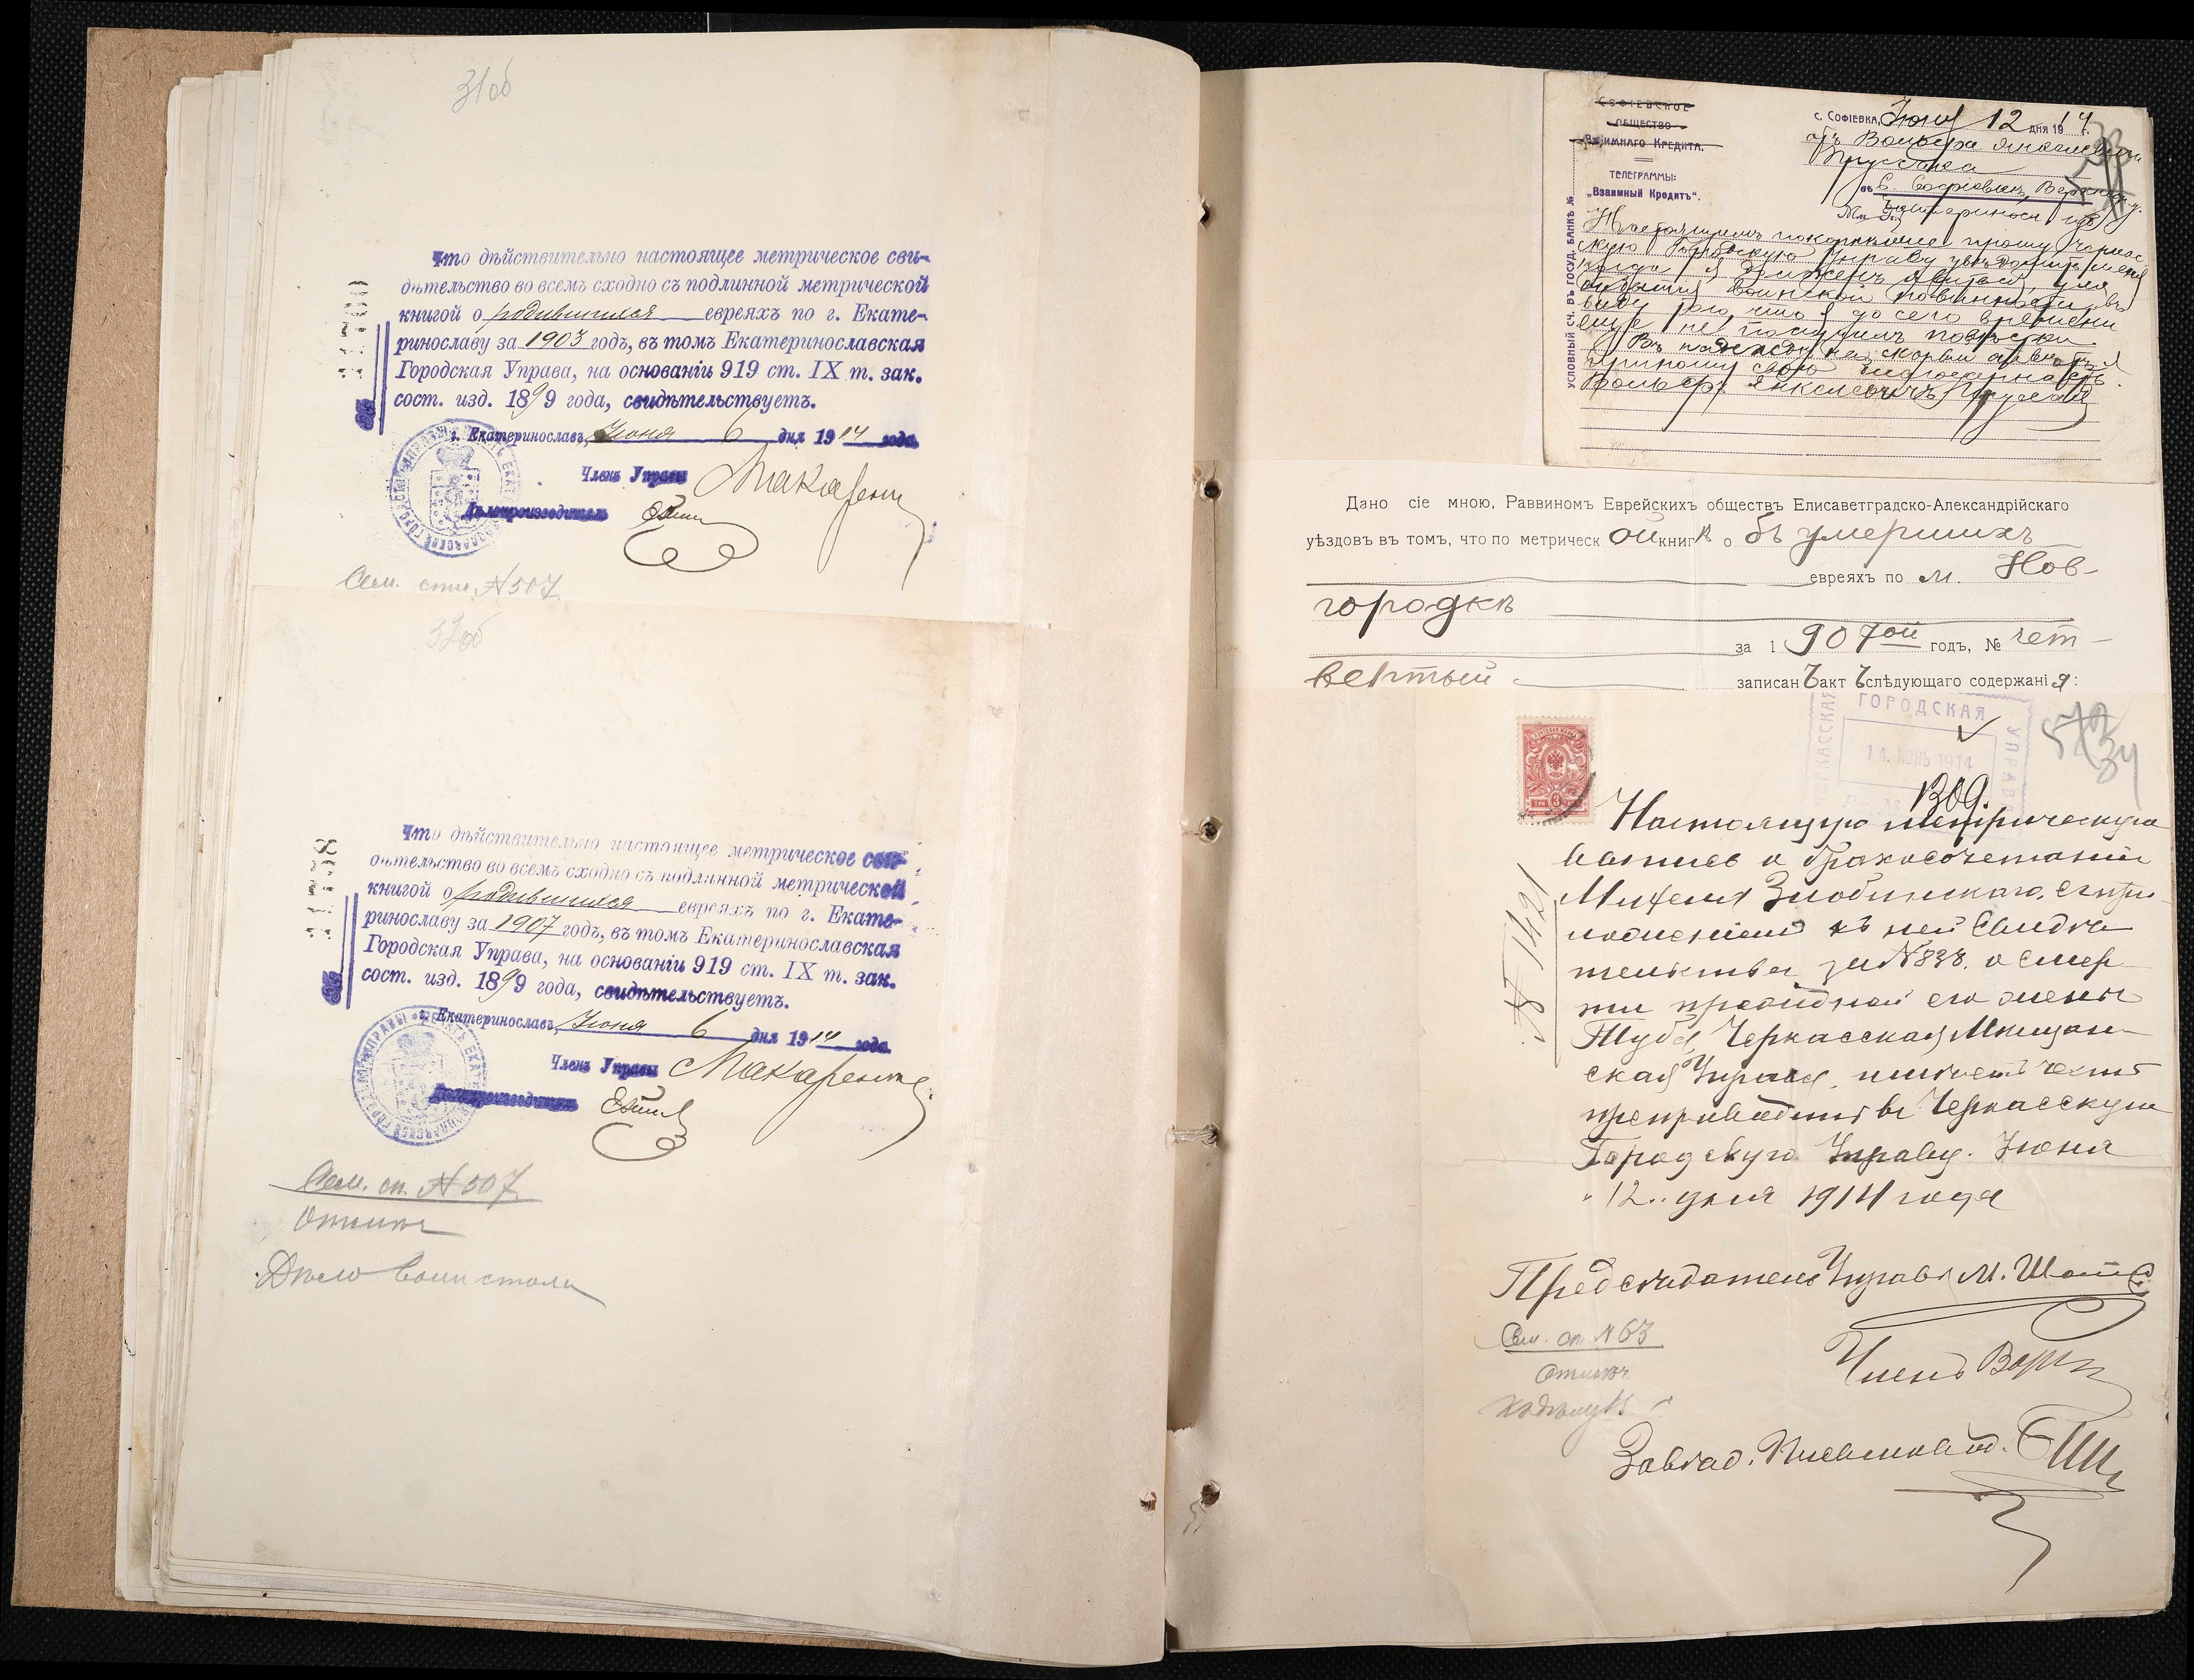 31об
Что дѣйствительно настоящее метрическое сви-
дѣтельство во всемъ сходно съ подлинной метрической
книгой о родившихся евреяхъ по г. Екате-
ринославу за 1903 годъ, въ томъ Екатеринославская
Городская Управа, на основаніи 919 ст. IX т. зак.
сост. изд. 1899 года, свидѣтельствуетъ.
г. Екатеринославъ, Іюня 6 дня 1914 года
Членъ Управы
Дѣлопроизводитель
Сем. спис. № 507
32об
Что дѣйствительно настоящее метрическое сви-
дѣтельство во всемъ сходно съ подлинной метрической
книгой о родившихся евреяхъ по г. Екате-
ринославу за 1907 годъ, въ томъ Екатеринославская
Городская Управа, на основаніи 919 ст. IX т. зак.
сост. изд. 1899 года, свидѣтельствуетъ.
г. Екатеринославъ, Іюня 6 дня 1914 года
Членъ Управы
Дѣлопроизводитель
Сем. сп. № 507
Дѣло
СОФІЕВСКОЕ
ОБЩЕСТВО
Взаимнаго Кредита.
ТЕЛЕГРАММЫ:
„Взаимный Кредитъ“.
УСЛОВНЫЙ СЧ. ВЪ ГОСУД. БАНКѢ №
с. Софіевка, Іюня 12 дня 1914 г.
отъ Вольфа
въ с. Софіевкѣ,
Настоящимъ покорнѣйше прошу Черкас-
скую Городскую Управу увѣдомить меня
когда я долженъ явиться для
отбытія воинской повинности въ
виду того, что я до сего времени
еще не получилъ повѣстки.
Въ надеждѣ на скорый отвѣтъ я
приношу свою благодарность.
Вольфъ
Дано сіе мною, Раввиномъ Еврейскихъ обществъ Елисаветградско-Александрійскаго
уѣздовъ въ томъ, что по метрической книгѣ объ умершихъ
евреяхъ по м. Нов-
городкѣ
за 1907ой годъ, № чет-
вертый
записанъ актъ слѣдующаго содержанія:
ГОРОДСКАЯ
УПРАВА
14 ІЮНЬ 1914
1309.
34
№ 1421
Настоящую метрическую
запись о бракосочетаніи
Злобинскаго, съ при-
ложеніемъ къ ней Свидѣ-
тельства за № 838. о смер-
ти его жены
Черкасская Мѣщан-
ская Управа, имѣетъ честь
препроводить въ Черкасскую
Городскую Управу. Іюня
„12„ дня 1914 года
Предсѣдатель Управы М.
Сем. сп. № 63
Членъ
Завѣд. Письмовод.